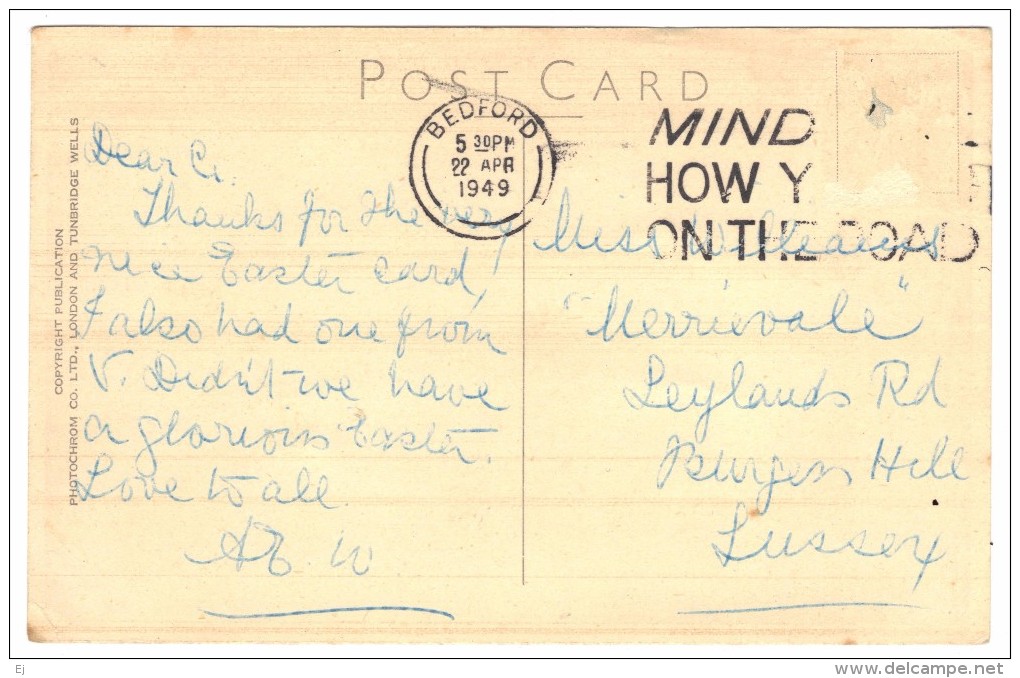 POST CARD
BEDFORD
5 30PM
22 APR
1949
MIND
HOW Y
ON THE ROAD
COPYRIGHT PUBLICATION
PHOTOCHROM CO. LTD., LONDON AND TUNBRIDGE WELLS
Dear C.
Thanks for the very
nice Easter card,
I also had one from
V. Didn't we have
a glorious Easter.
Love to all
W
Miss Williams
"Merrievale"
Leylands Rd
Burgess Hill
Sussex
Ej
www.delcampe.net